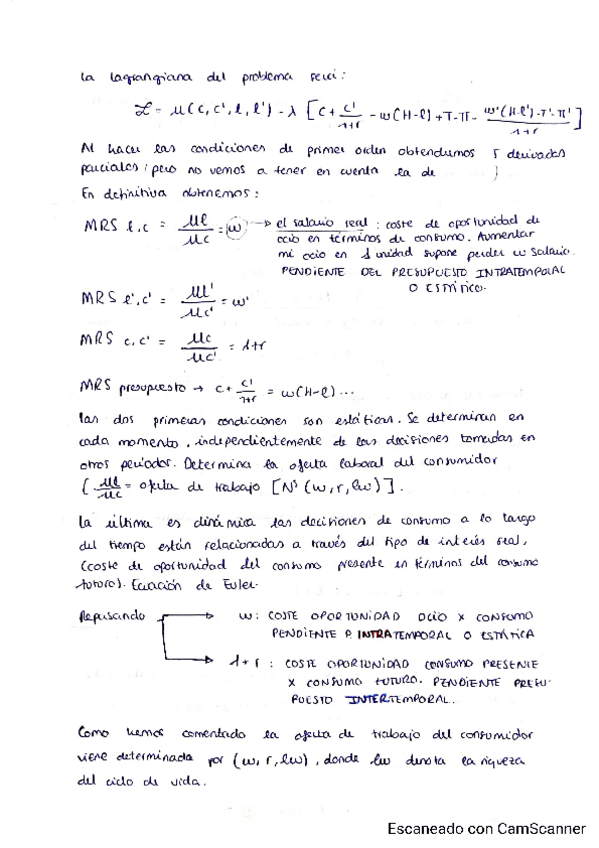 La lagrangiana del problema será:
L = μ(c, c', l, l') - λ [c + c'/1+r - w(H-l) + T - π - w'(H-l') - T' - π'/1+r]
Al hacer las condiciones de primer orden obtendremos 5 derivadas
parciales, pero no vamos a tener en cuenta la de
En definitiva obtenemos:
MRS l, c = μl/μc = w → el salario real: coste de oportunidad de
ocio en términos de consumo. Aumentar
mi ocio en 1 unidad supone perder w salario.
PENDIENTE DEL PRESUPUESTO INTRATEMPORAL
O ESTÁTICO.
MRS l', c' = μl'/μc' = w'
MRS c, c' = μc/μc' = 1+r
MRS presupuesto → c + c'/1+r = w(H-l)...
Las dos primeras condiciones son estáticas. Se determinan en
cada momento, independientemente de las decisiones tomadas en
otros periodos. Determina la oferta laboral del consumidor
( μl/μc = oferta de trabajo [Nˢ (w, r, lw)].
La última es dinámica las decisiones de consumo a lo largo
del tiempo están relacionadas a través del tipo de interés real,
(coste de oportunidad del consumo presente en términos del consumo
futuro). Ecuación de Euler.
Repasando → w: COSTE OPORTUNIDAD OCIO X CONSUMO
PENDIENTE P. INTRATEMPORAL O ESTÁTICA
→ 1+r: COSTE OPORTUNIDAD CONSUMO PRESENTE
X CONSUMO FUTURO. PENDIENTE PRESU-
PUESTO INTERTEMPORAL.
Como hemos comentado la oferta de trabajo del consumidor
viene determinada por (w, r, lw), donde lw denota la riqueza
del ciclo de vida.
Escaneado con CamScanner